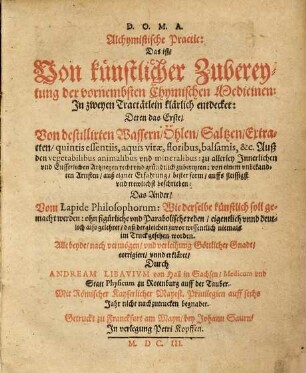 D. O. M. A.
Alchymistische Practic:
Das ist/
Von künstlicher Zuberey-
tung der vornembsten Chymischen Medicinen:
In zweyen Tractätlein klärlich entdecket:
Deren das Erste/
Von destillirten Wassern/Öhlen/Saltzen/Extra-
cten/quintis essentiis, aquis vitæ, floribus, balsamis, &c. Auß
den vegetabilibus animalibus und mineralibus: zu allerley Innerlichen
und Eusserlichen Artzneyen recht und
Artisten/ auß eigner Erfahrung/ bester form/ auffs fleissigst
und newlichst beschrieben:
Das Ander/
Vom Lapide Philosophorum: Wie derselbe künstlich soll ge-
macht werden: ohn figürliche und Parabolische reden/ eigentlich unnd deut-
lich also gelehret/ daß dergleichen zuvor niemals
im Truck gesehen worden.
Alle beyde/ nach vermögen/ und verleihung Göttlicher Gnade/
corrigiert/ unnd erkläret/
Durch
ANDREAM LIBAVIUM von Hall in Sachsen/ Medicum und
Statt Physicum zu Rotenburg auff der Tauber.
Mit Römischer Kayserlicher Mayest. Privilegien auff sechs
Jahr nicht nachzutrucken begnadet.
Getruckt zu Franckfort am Mayn/ bey Johann Saurn/
In verlegung Petri Kopffen.
M. DC. III.